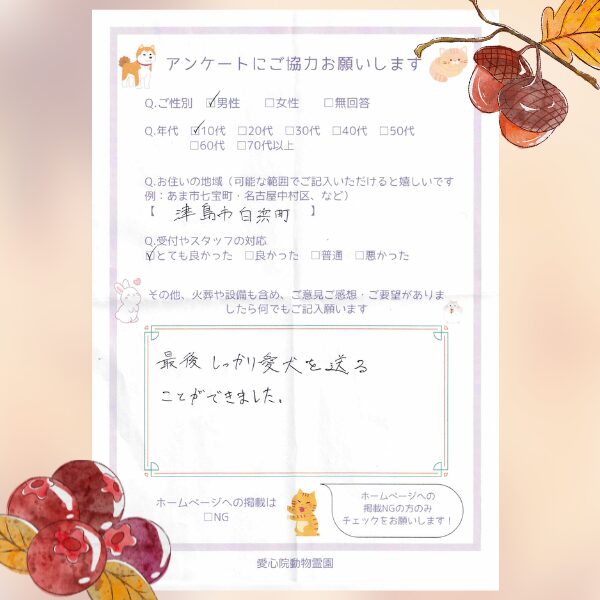 アンケートにご協力お願いします
Q.ご性別 ☑男性 □女性 □無回答
Q.年代 ☑10代 □20代 □30代 □40代 □50代
□60代 □70代以上
Q.お住いの地域（可能な範囲でご記入いただけると嬉しいです
例：あま市七宝町・名古屋中村区、など）
【 津島市白浜町 】
Q.受付やスタッフの対応
☑とても良かった □良かった □普通 □悪かった
その他、火葬や設備も含め、ご意見ご感想・ご要望がありま
したら何でもご記入願います
最後しっかり愛犬を送る
ことができました。
ホームページへの掲載は
□NG
ホームページへの
掲載NGの方のみ
チェックをお願いします！
愛心院動物霊園